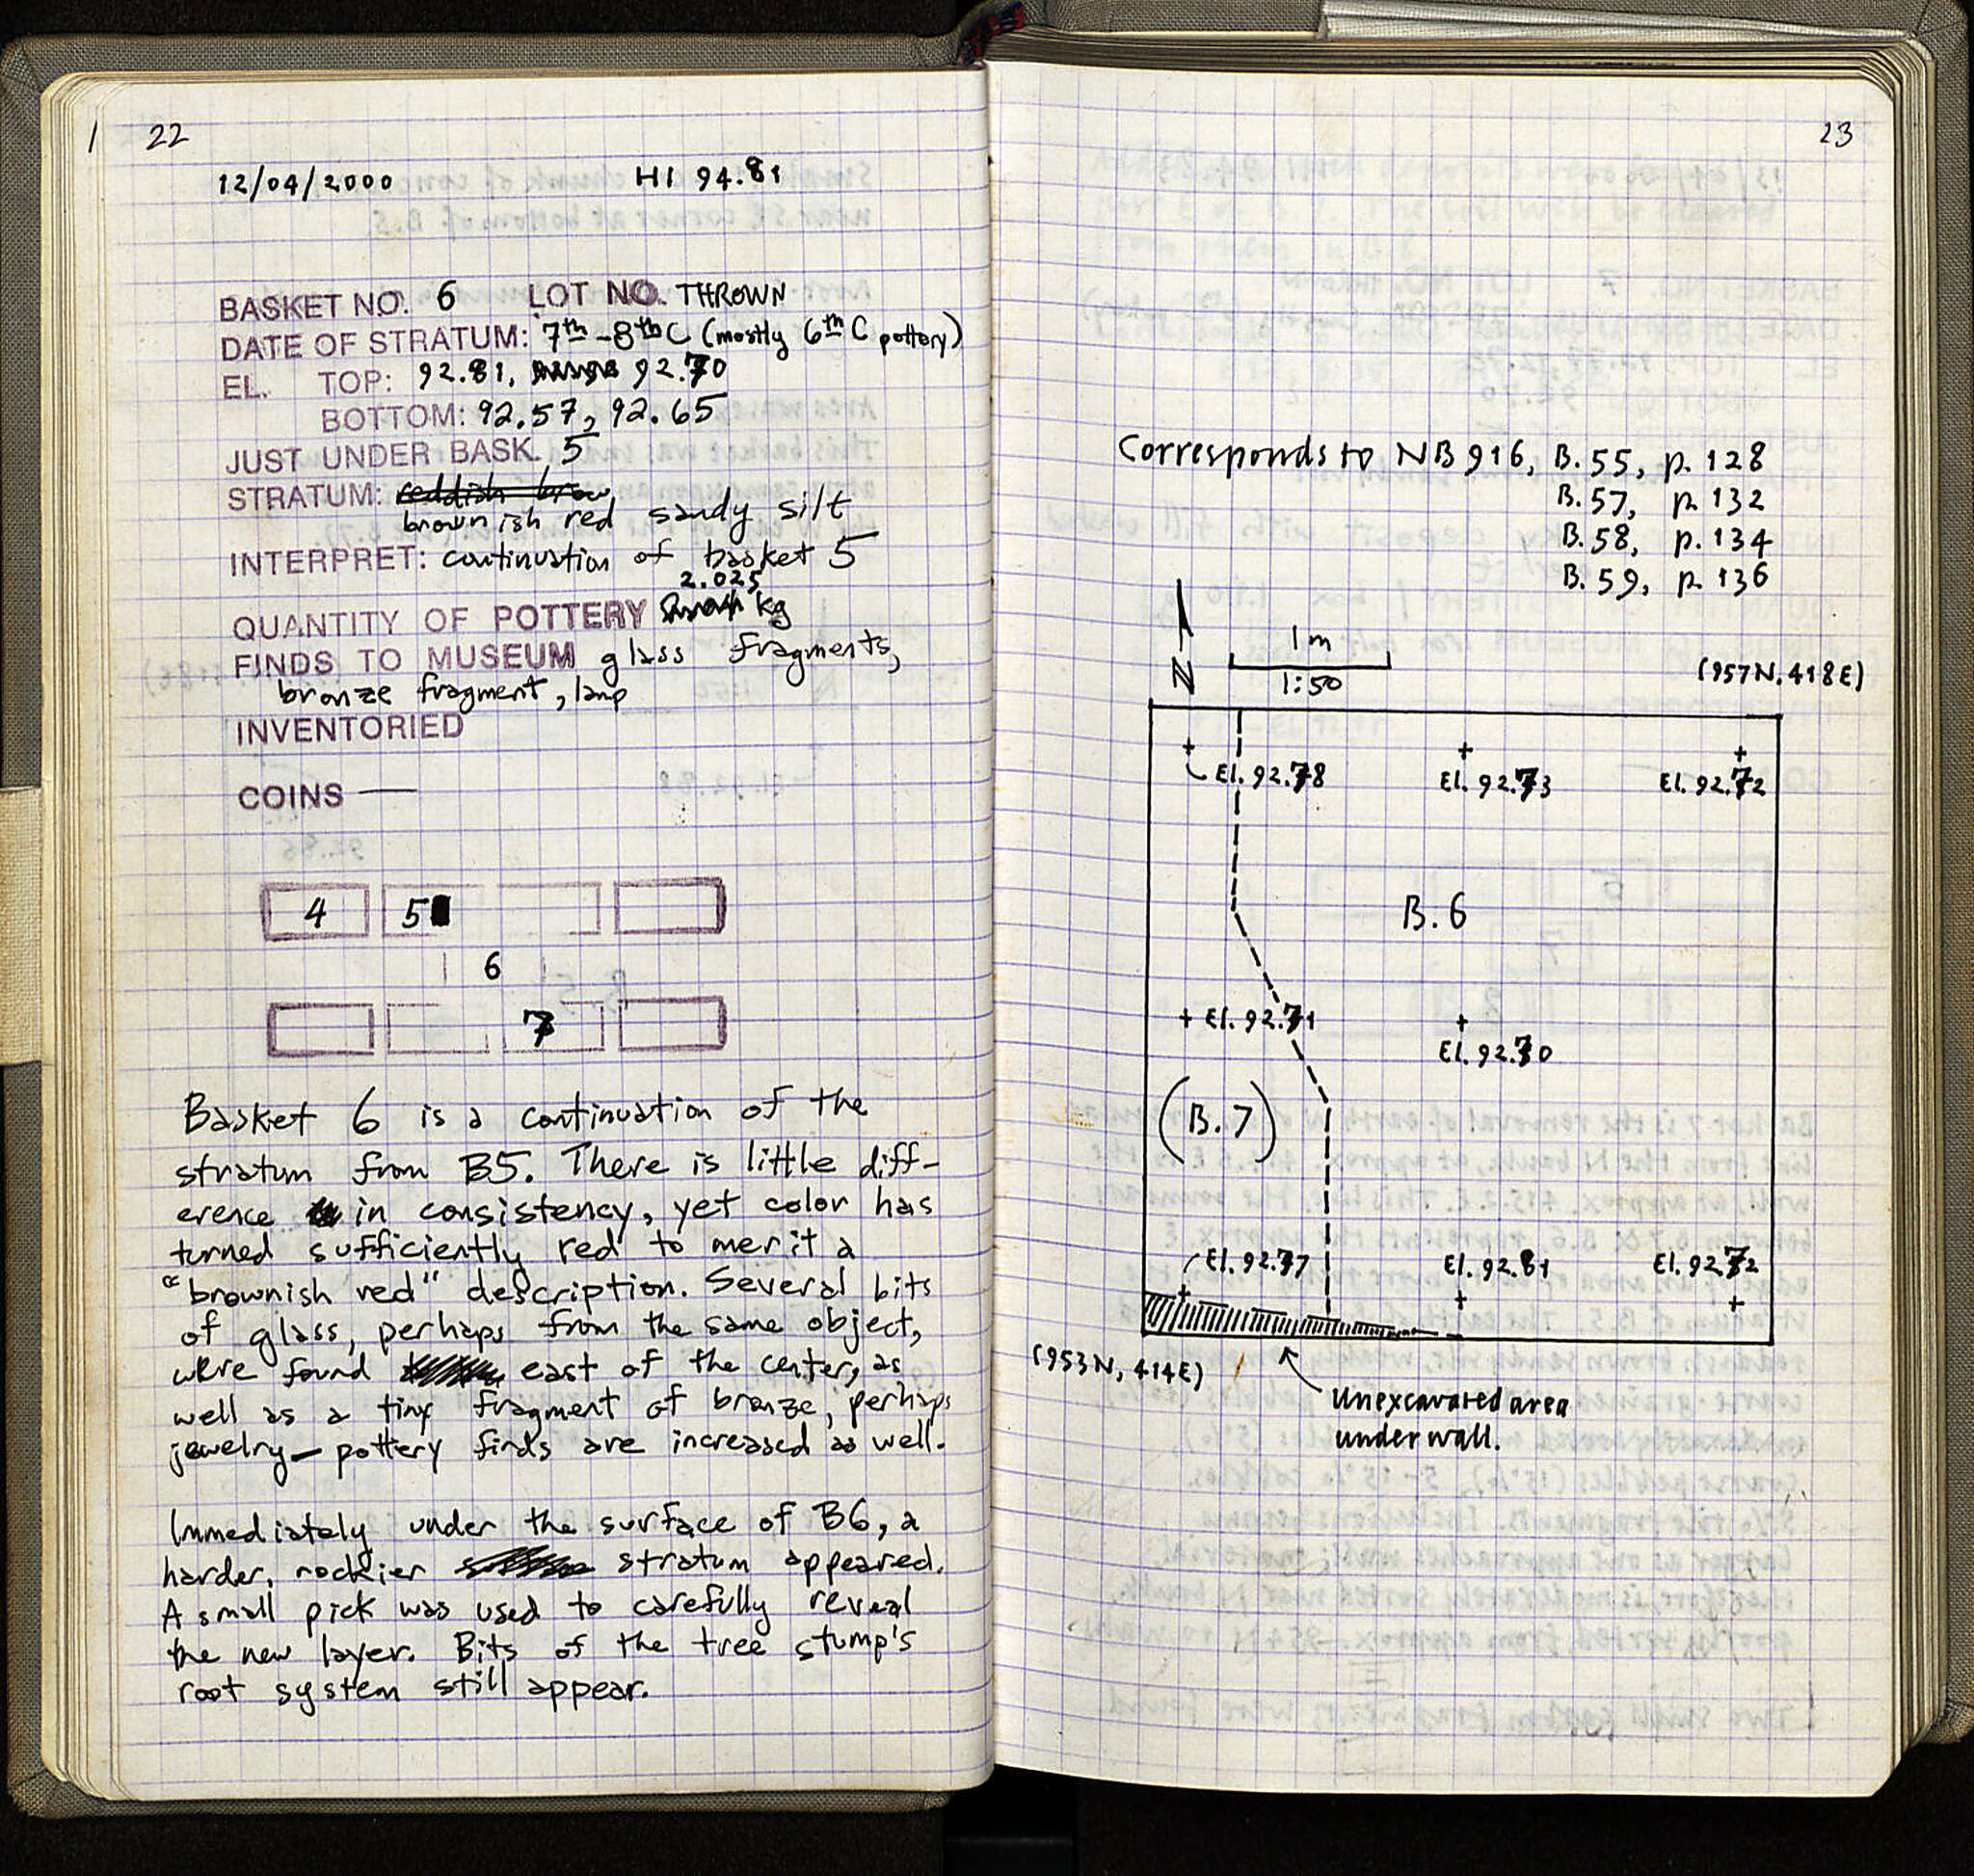 1 22
12/04/2000 HI 94.81
BASKET NO. 6 LOT NO. THROWN
DATE OF STRATUM: 7th-8th C (mostly 6th C pottery)
EL. TOP: 92.81, 92.70
BOTTOM: 92.57, 92.65
JUST UNDER BASK. 5
STRATUM: reddish brow
brownish red sandy silt
INTERPRET: continuation of basket 5
2.025
QUANTITY OF POTTERY kg
FINDS TO MUSEUM glass fragments,
bronze fragment, lamp
INVENTORIED
COINS —
4 5
6
7
Basket 6 is a continuation of the
stratum from B5. There is little diff-
erence in consistency, yet color has
turned sufficiently red to merit a
"brownish red" description. Several bits
of glass, perhaps from the same object,
were found east of the center, as
well as a tiny fragment of bronze, perhaps
jewelry — pottery finds are increased as well.
Immediately under the surface of B6, a
harder, rockier stratum appeared.
A small pick was used to carefully reveal
the new layer. Bits of the tree stump's
root system still appear.
23
Corresponds to NB 916, B.55, p. 128
B.57, p. 132
B.58, p. 134
B.59, p. 136
N
1 m
1:50
(957N, 418E)
El. 92.78 El. 92.73 El. 92.72
B.6
El. 92.71
El. 92.70
(B.7)
El. 92.77 El. 92.81 El. 92.72
(953N, 414E)
Unexcavated area
under wall.